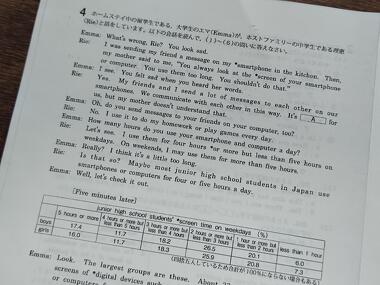 4 ホームステイ中の留学生である，大学生のエマ(Emma)が，ホストファミリーの中学生である理恵
(Rie)と話をしています。以下の会話を読んで，(1)～(6)の問いに答えなさい。
Emma: What's wrong, Rie? You look sad.
Rie: I was sending my friend a message on my *smartphone in the kitchen. Then,
my mother said to me, "You always look at the *screen of your smartphone
or computer. You use them too long. You shouldn't do that."
Emma: I see. You felt sad when you heard her words.
Rie: Yes. My friends and I send a lot of messages to each other on our
smartphones. We communicate with each other in this way. It's A for
us, but my mother doesn't understand that.
Emma: Oh, do you send messages to your friends on your computer, too?
Rie: No, I use it to do my homework or play games every day.
Emma: How many hours do you use your smartphone and computer a day?
Rie: Let's see. I use them for four hours *or more but less than five hours on
weekdays. On weekends, I may use them for more than five hours.
Emma: Really? I think it's a little too long.
Rie: Is that so? Maybe most junior high school students in Japan use
smartphones or computers for four or five hours a day.
Emma: Well, let's check it out.
[Five minutes later]
junior high school students' *screen time on weekdays (%)
5 hours or more 4 hours or more but less than 5 hours 3 hours or more but less than 4 hours 2 hours or more but less than 3 hours 1 hour or more but less than 2 hours less than 1 hour
boys 17.4 11.7 18.2 26.5 20.1 6.0
girls 16.0 11.7 18.3 25.9 20.8 7.3
(四捨五入しているため合計が100%にならない場合もある)
Emma: Look. The largest groups are these. About
screens of *digital devices
or computers